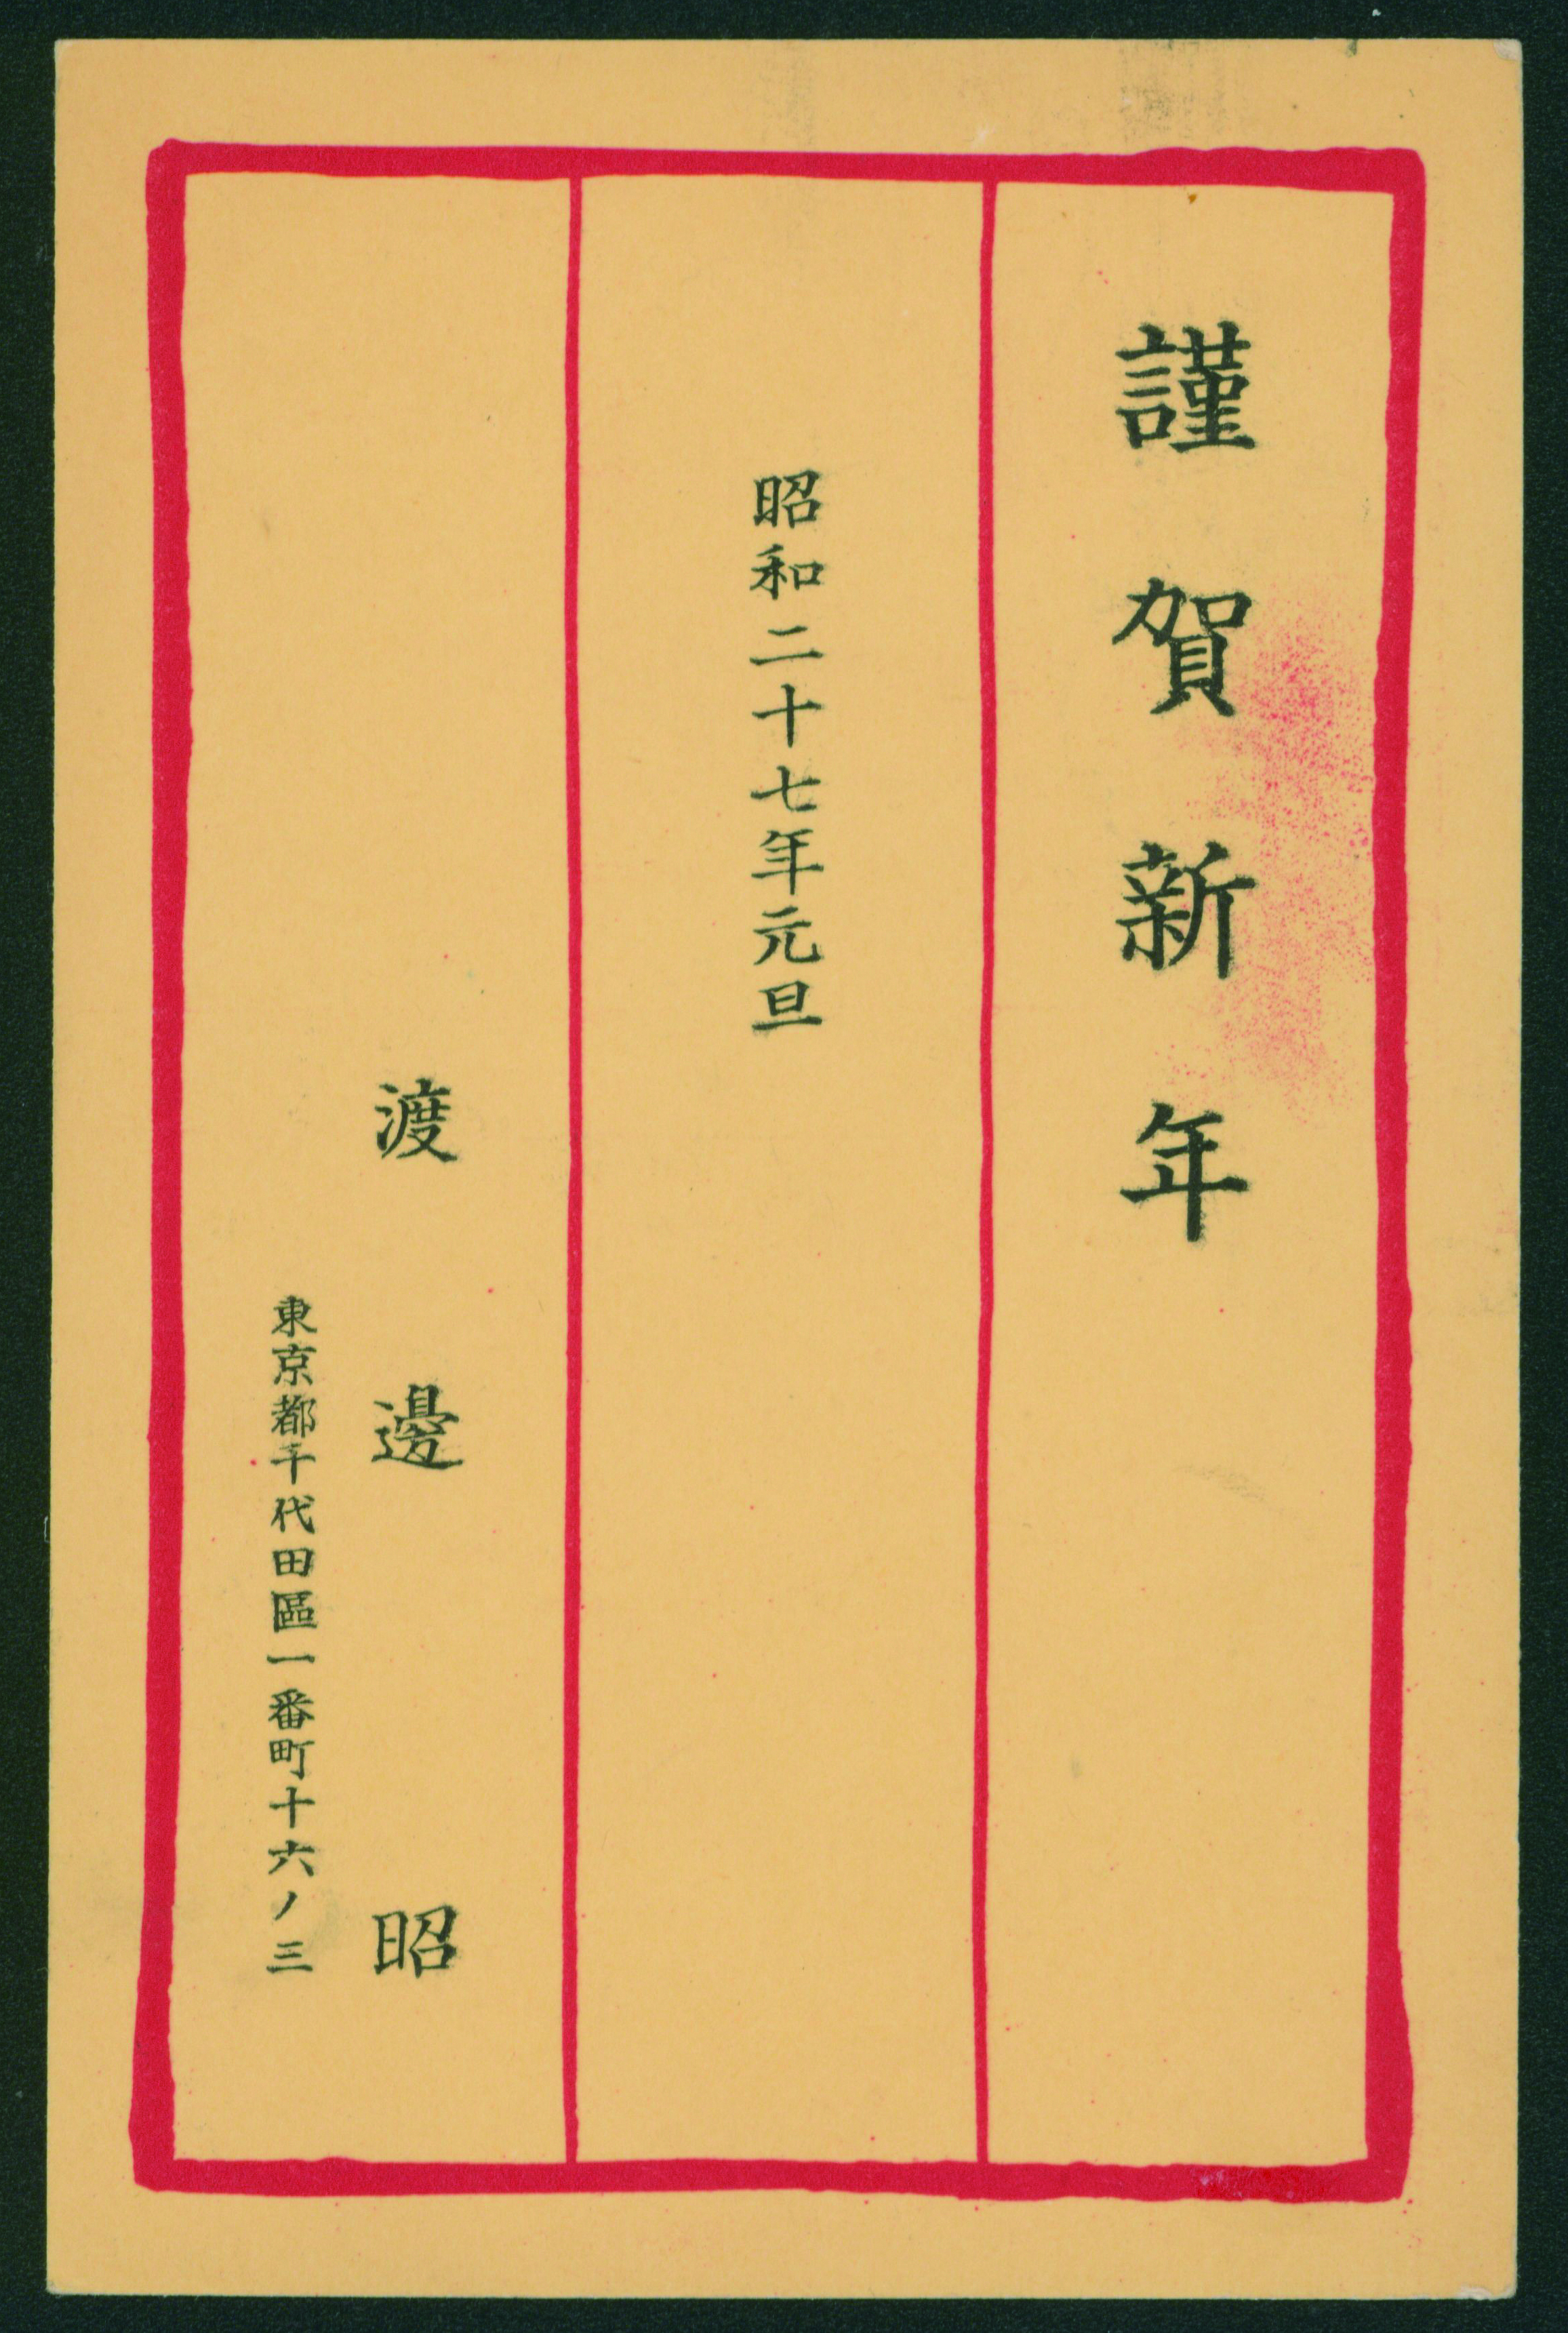 謹賀新年
昭和二十七年元旦
渡邊昭
東京都千代田區一番町十六ノ三